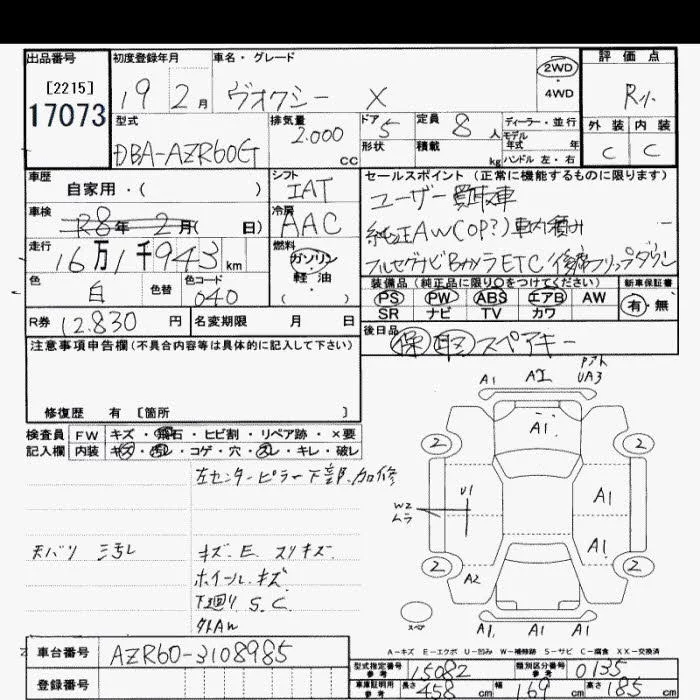 出品番号
[2215]
17073
初度登録年月
19 2月
車名・グレード
ヴオクシー X
2WD
・
4WD
評価点
R小
外装 内装
C C
型式
DBA-AZR60G
排気量
2.000
cc
ドア 5
形状
定員 8 人
積載 kg
ディーラー・並行
モデル
年式 年
ハンドル 左・右
車歴
自家用・( )
シフト
IAT
セールスポイント (正常に機能するものに限ります)
ユーザー買取車
純正AW(OP?)車内積み
フルセグナビBカメラETC/後席フリップダウン
車検
R8年 2月( 日)
冷房
AAC
走行
16万1千943km
燃料
ガソリン
・
軽・油
・( )
色
白
色替
色コード
040
装備品 (純正品に限り○をつけてください)
PS PW ABS エアB AW
SR ナビ TV カワ
新車保証書
有・無
R券 12.830 円
名変期限 月 日
後日品
保 取 スペアキー
注意事項申告欄(不具合内容等は具体的に記入して下さい)
修復歴 有 [箇所 ]
検査員
記入欄
FW キズ・飛石・ヒビ割・リペア跡・×要
内装 キズ・汚レ・コゲ・穴・スレ・キレ・破レ
左センターピラー下部 加修
天バリ 三汚レ
キズ. E. スリキズ
ホイール. キズ
下廻り S. C.
外AW
A1 A1 Pアト
UA3
A1
2 2
U1
W2
ムラ
A1
A1
2 2
A2
スペア
A1. A1 A1
A-キズ E-エクボ U-凹み W-補修跡 S-サビ C-腐食 XX-交換済
車台番号 AZR60-3108985
登録番号
型式指定番号
参考
15082
類別区分番号
参考
0135
車庫証明用
参考
長さ 458 cm
幅 169 cm
高さ 185 cm